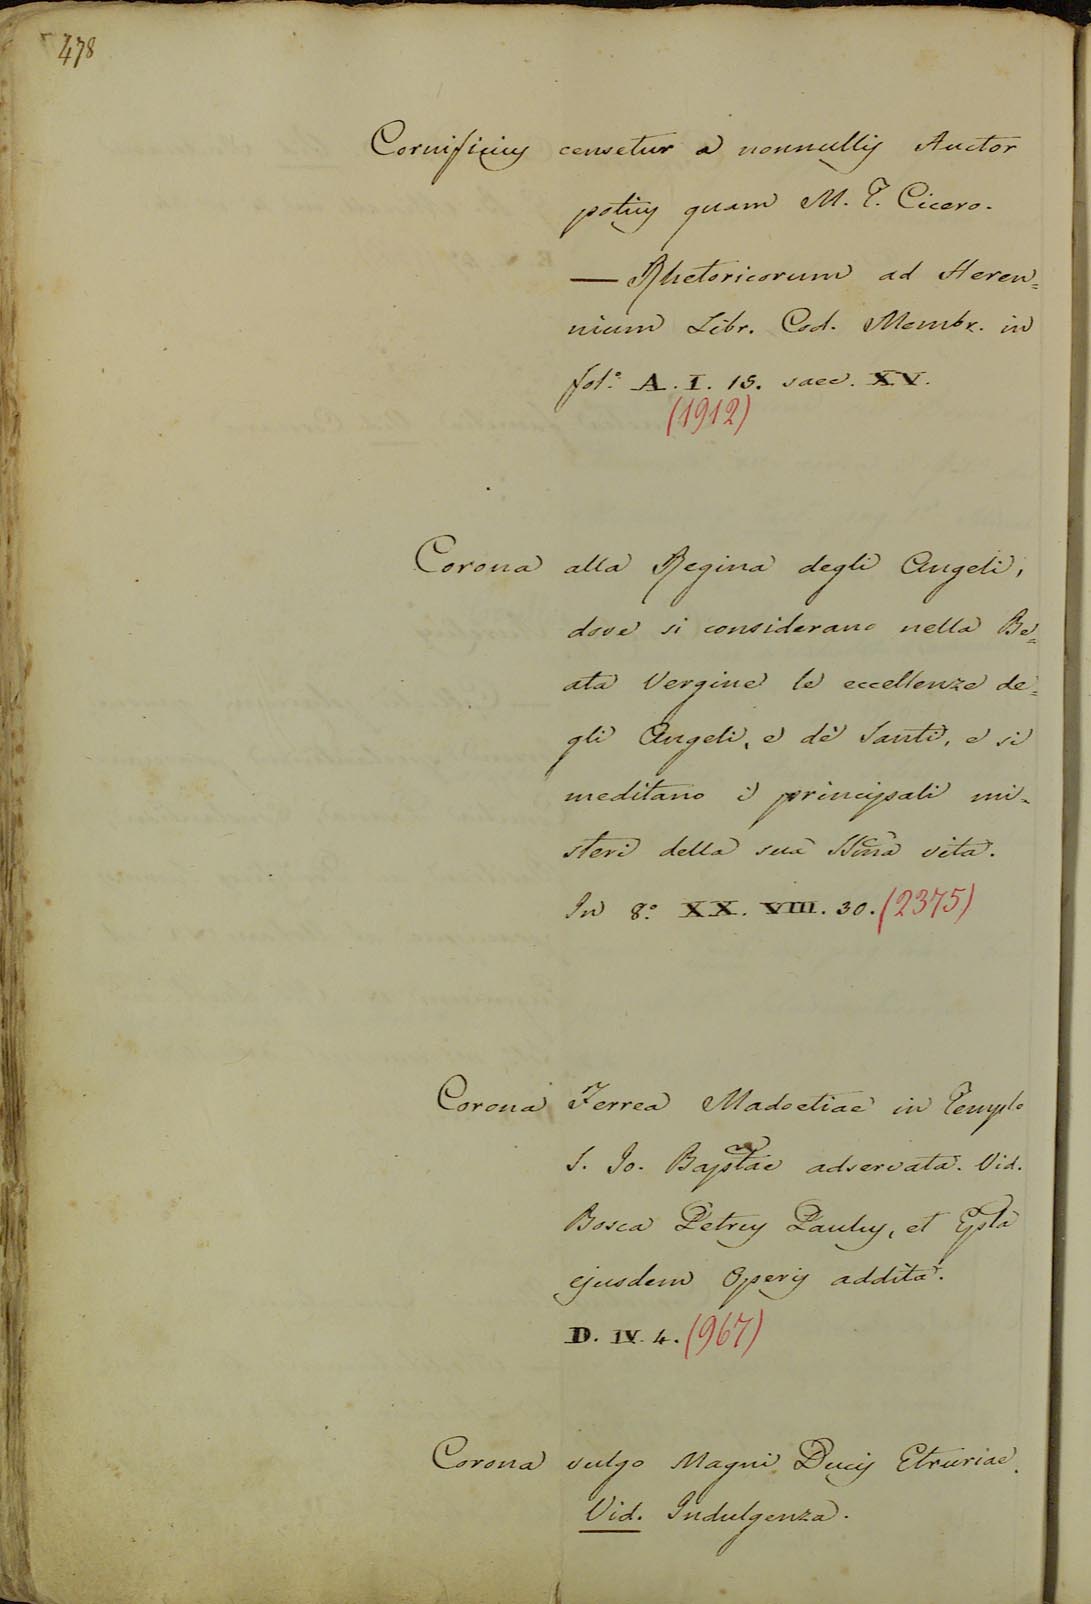 478
Cornificius censetur a nonnullis Auctor
potius quam M. T. Cicero.
— Rhetoricorum ad Heren=
nium Libr. Cod. Membr. in
fol.º A. I. 15. saec. XV.
(1912)
Corona alla Regina degli Angeli,
dove si considerano nella Be=
ata Vergine le eccellenze de=
gli Angeli, e de' Santi, e si
meditano i principali mi-
steri della sua SSma vita.
In 8.º XX. VIII. 30. (2375)
Corona Ferrea Madoetiae in Templo
S. Jo. Baptae adservata. Vid.
Bosca Petrus Paulus, et Epsta
ejusdem Operis addita.
D. IV. 4. (967)
Corona vulgo Magni Ducis Etruriae.
Vid. Indulgenza.